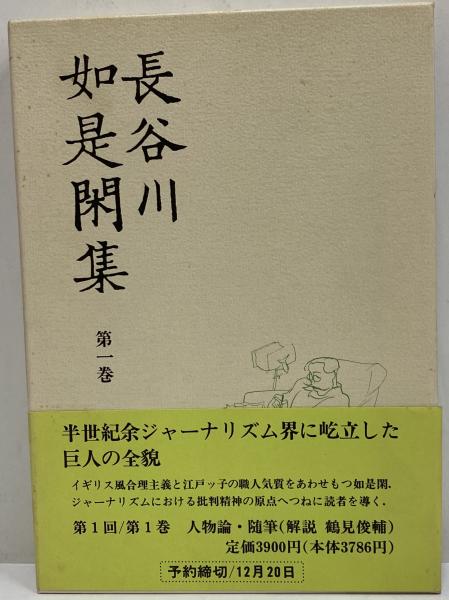 長谷川
如是閑集
第一巻
半世紀余ジャーナリズム界に屹立した
巨人の全貌
イギリス風合理主義と江戸ッ子の職人気質をあわせもつ如是閑.
ジャーナリズムにおける批判精神の原点へつねに読者を導く.
第1回/第1巻 人物論・随筆(解説 鶴見俊輔)
定価3900円(本体3786円)
予約締切/12月20日